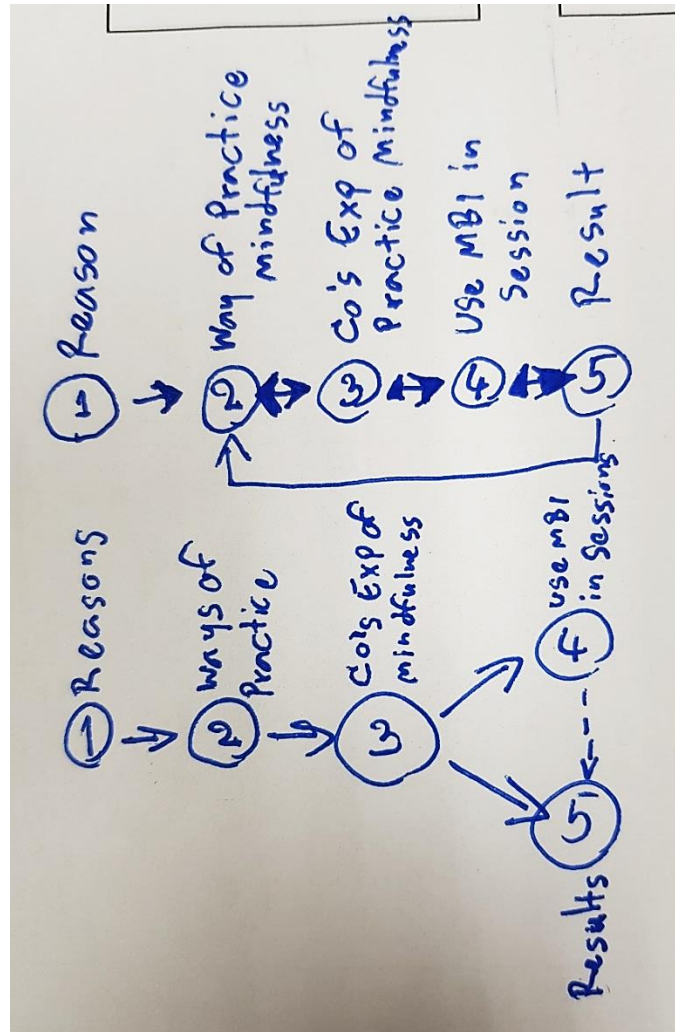 1 Reasons
2 ways of
Practice
3 Co's Exp of
mindfulness
4 use MBI
in sessions
Results 5
1 Reason
2 Way of Practice
mindfulness
3 Co's Exp of
Practice mindfulness
4 Use MBI in
Session
5 Result